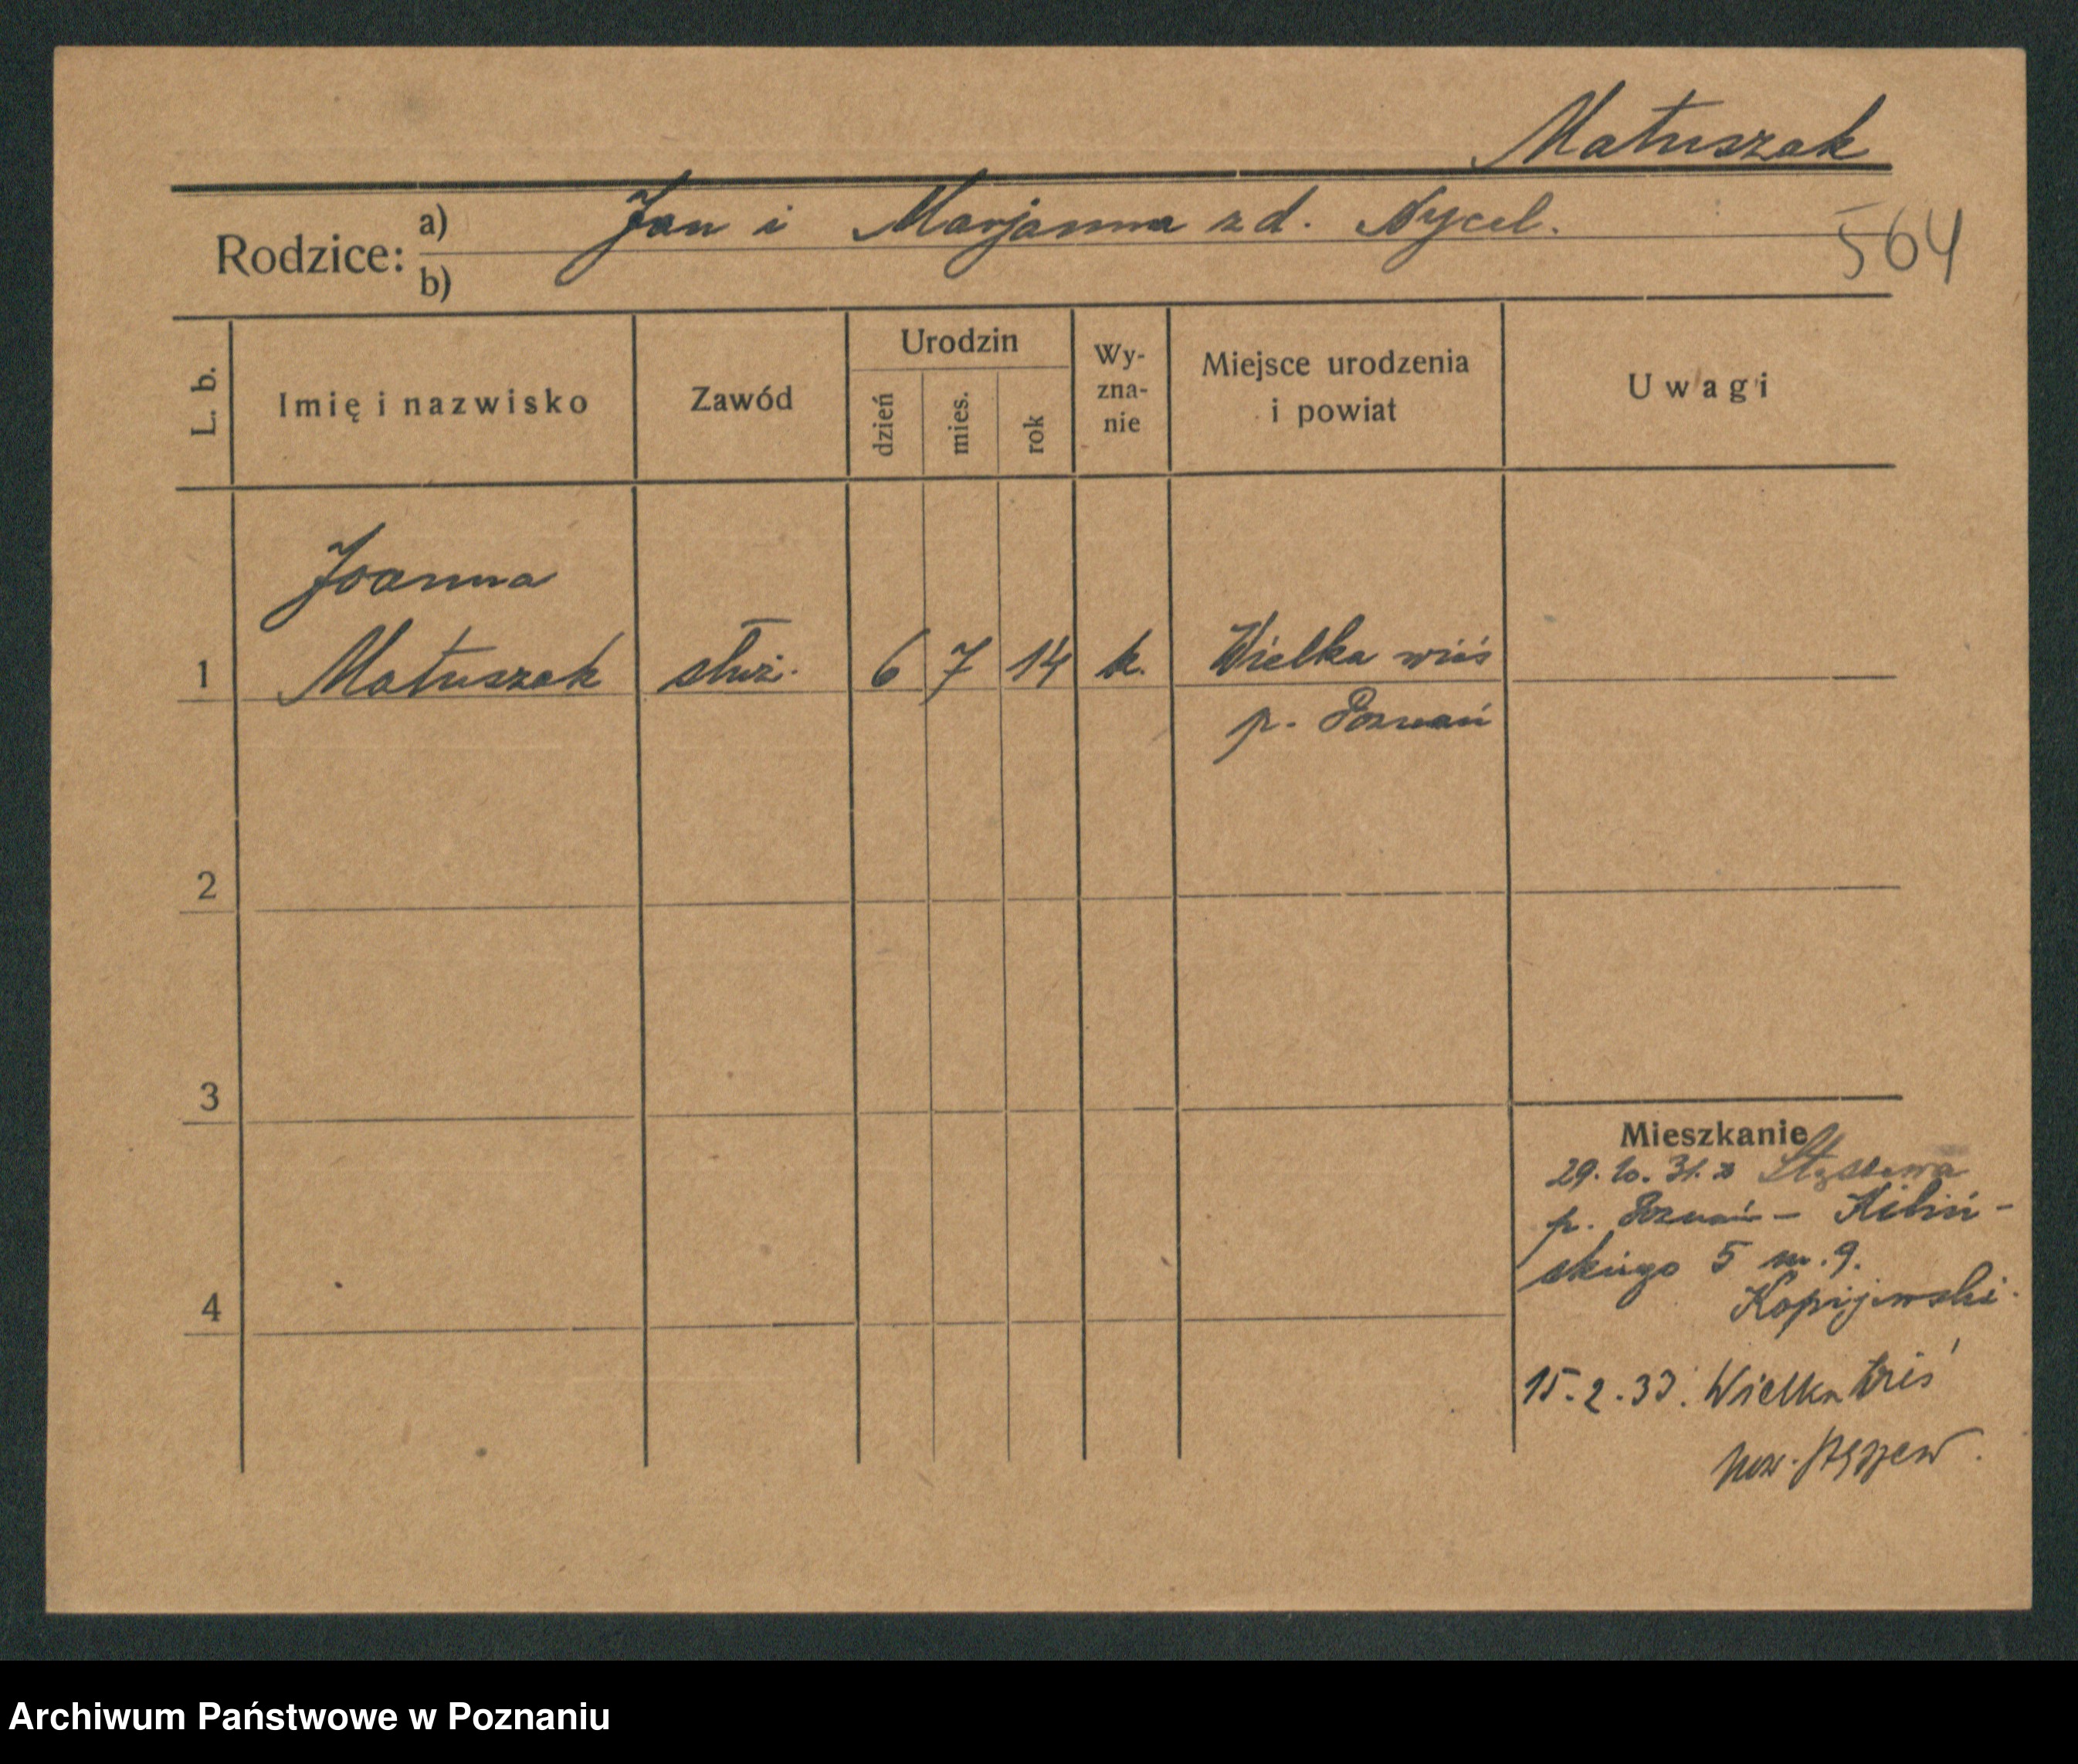 Matuszak
564
Rodzice: a) Jan i Marjanna zd. Nycel.
b)
L. b.
Imię i nazwisko
Zawód
Urodzin
dzień
mies.
rok
Wy-
zna-
nie
Miejsce urodzenia
i powiat
Uwagi
Joanna
1 Matuszak służ. 6 7 14 k. Wielka wieś
p. Poznań
2
3
4
Mieszkanie
29. 10. 31. z Stęszewa
p. Poznań - Kiliń-
skiego 5 m. 9.
Kopijewski.
15.2.33. Wielka Wieś
Stęszew.
Archiwum Państwowe w Poznaniu